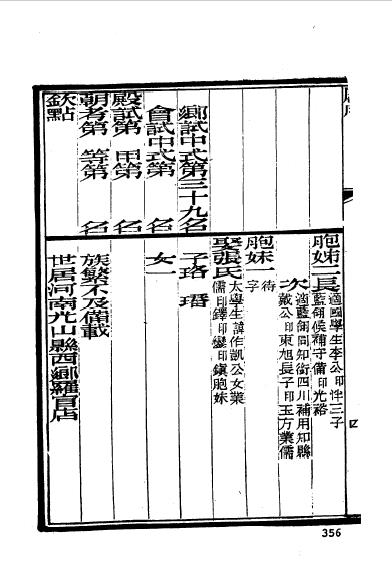 鄉試中式第三十九名
會試中式第 名
殿試第 甲第 名
朝考第 等第 名
欽點
胞姊二長
適國學生李公印三子
藍翎候補守備印光裕
次
適藍翎同知銜四川補用知縣
戴公印東旭長子印玉方業儒
胞妹一
待
字
娶張氏
太學生諱作凱公女業
儒印鐸印鑾印鎮胞妹
子珞 瑨
女一
族繁不及備載
世居河南光山縣西鄉羅店
356